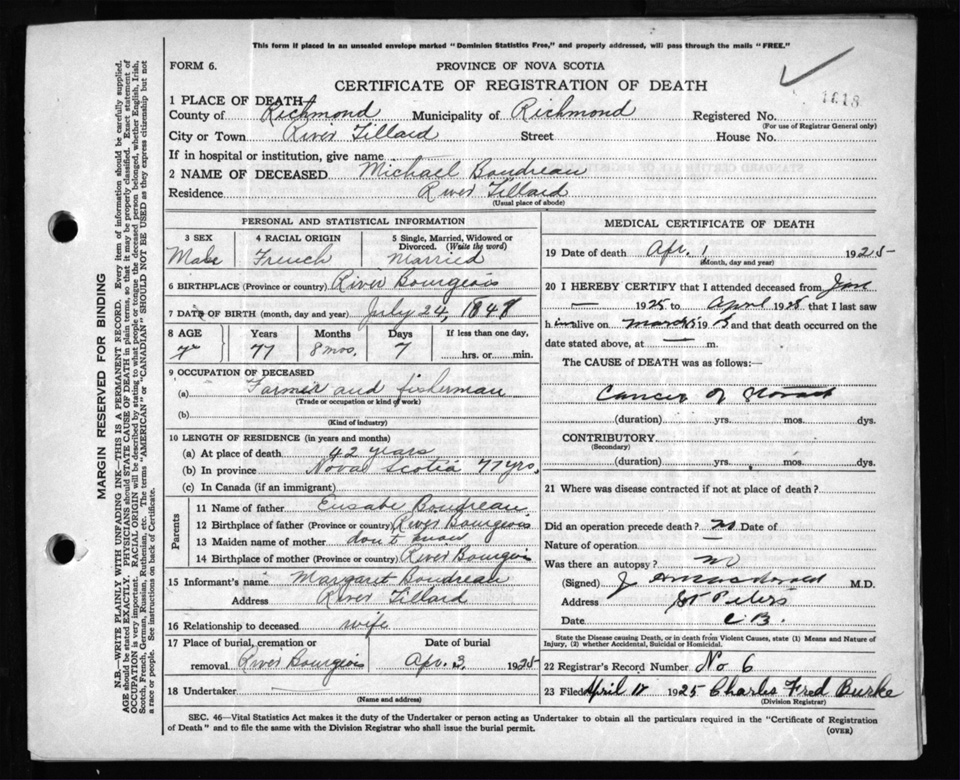 This form if placed in an unsealed envelope marked "Dominion Statistics Free," and properly addressed, will pass through the mails "FREE."
FORM 6.
PROVINCE OF NOVA SCOTIA
CERTIFICATE OF REGISTRATION OF DEATH
1618
1 PLACE OF DEATH
County of Richmond Municipality of Richmond Registered No.
(For use of Registrar General only)
City or Town River Tillard Street House No.
If in hospital or institution, give name
2 NAME OF DECEASED Michael Boudreau
Residence River Tillard
(Usual place of abode)
PERSONAL AND STATISTICAL INFORMATION
3 SEX 4 RACIAL ORIGIN 5 Single, Married, Widowed or Divorced. (Write the word)
Male French Married
6 BIRTHPLACE (Province or country) River Bourgeois
7 DATE OF BIRTH (month, day and year) July 24, 1848
8 AGE Years Months Days If less than one day,
77 8 mos. 7 hrs. or min.
9 OCCUPATION OF DECEASED
(a) Farmer and fisherman
(Trade or occupation or kind of work)
(b)
(Kind of industry)
10 LENGTH OF RESIDENCE (in years and months)
(a) At place of death 42 years
(b) In province Nova Scotia 77 yrs.
(c) In Canada (if an immigrant)
Parents
11 Name of father Eusabe Boudreau
12 Birthplace of father (Province or country) River Bourgeois
13 Maiden name of mother don't know
14 Birthplace of mother (Province or country) River Bourgeois
15 Informant's name Margaret Boudreau
Address River Tillard
16 Relationship to deceased wife
17 Place of burial, cremation or removal River Bourgeois Date of burial Apr. 3, 1925
18 Undertaker
(Name and address)
MEDICAL CERTIFICATE OF DEATH
19 Date of death Apr. 1 1925
(Month, day and year)
20 I HEREBY CERTIFY that I attended deceased from Jan
1925 to April 1925 that I last saw
him alive on March 1925 and that death occurred on
date stated above, at — m.
The CAUSE of DEATH was as follows:
Cancer of
(duration) yrs. mos. dys.
CONTRIBUTORY
(Secondary)
(duration) yrs. mos. dys.
21 Where was disease contracted if not at place of death?
Did an operation precede death? no Date of
Nature of operation —
Was there an autopsy? no
(Signed) J M.D.
Address St Peters
Date C B.
State the Disease causing Death, or in death from Violent Causes, state (1) Means and Nature of Injury, (2) whether Accidental, Suicidal or Homicidal.
22 Registrar's Record Number No 6
23 Filed April 1925 Charles Fred Burke
(Division Registrar)
SEC. 46—Vital Statistics Act makes it the duty of the Undertaker or person acting as Undertaker to obtain all the particulars required in the "Certificate of Registration
of Death" and to file the same with the Division Registrar who shall issue the burial permit.
(OVER)
MARGIN RESERVED FOR BINDING
N.B.—WRITE PLAINLY WITH UNFADING INK—THIS IS A PERMANENT RECORD. Every item of information should be carefully supplied.
AGE should be stated EXACTLY. PHYSICIANS should STATE CAUSE OF DEATH in plain terms, so that it may be properly classified. Exact statement of
OCCUPATION is very important. RACIAL ORIGIN will be described by stating to what people or tongue the deceased person belonged, whether English, Irish,
Scotch, French, German, Russian, Ruthenian, etc. The terms "AMERICAN" or "CANADIAN" SHOULD NOT BE USED as they express citizenship but not
a race or people. See instructions on back of Certificate.